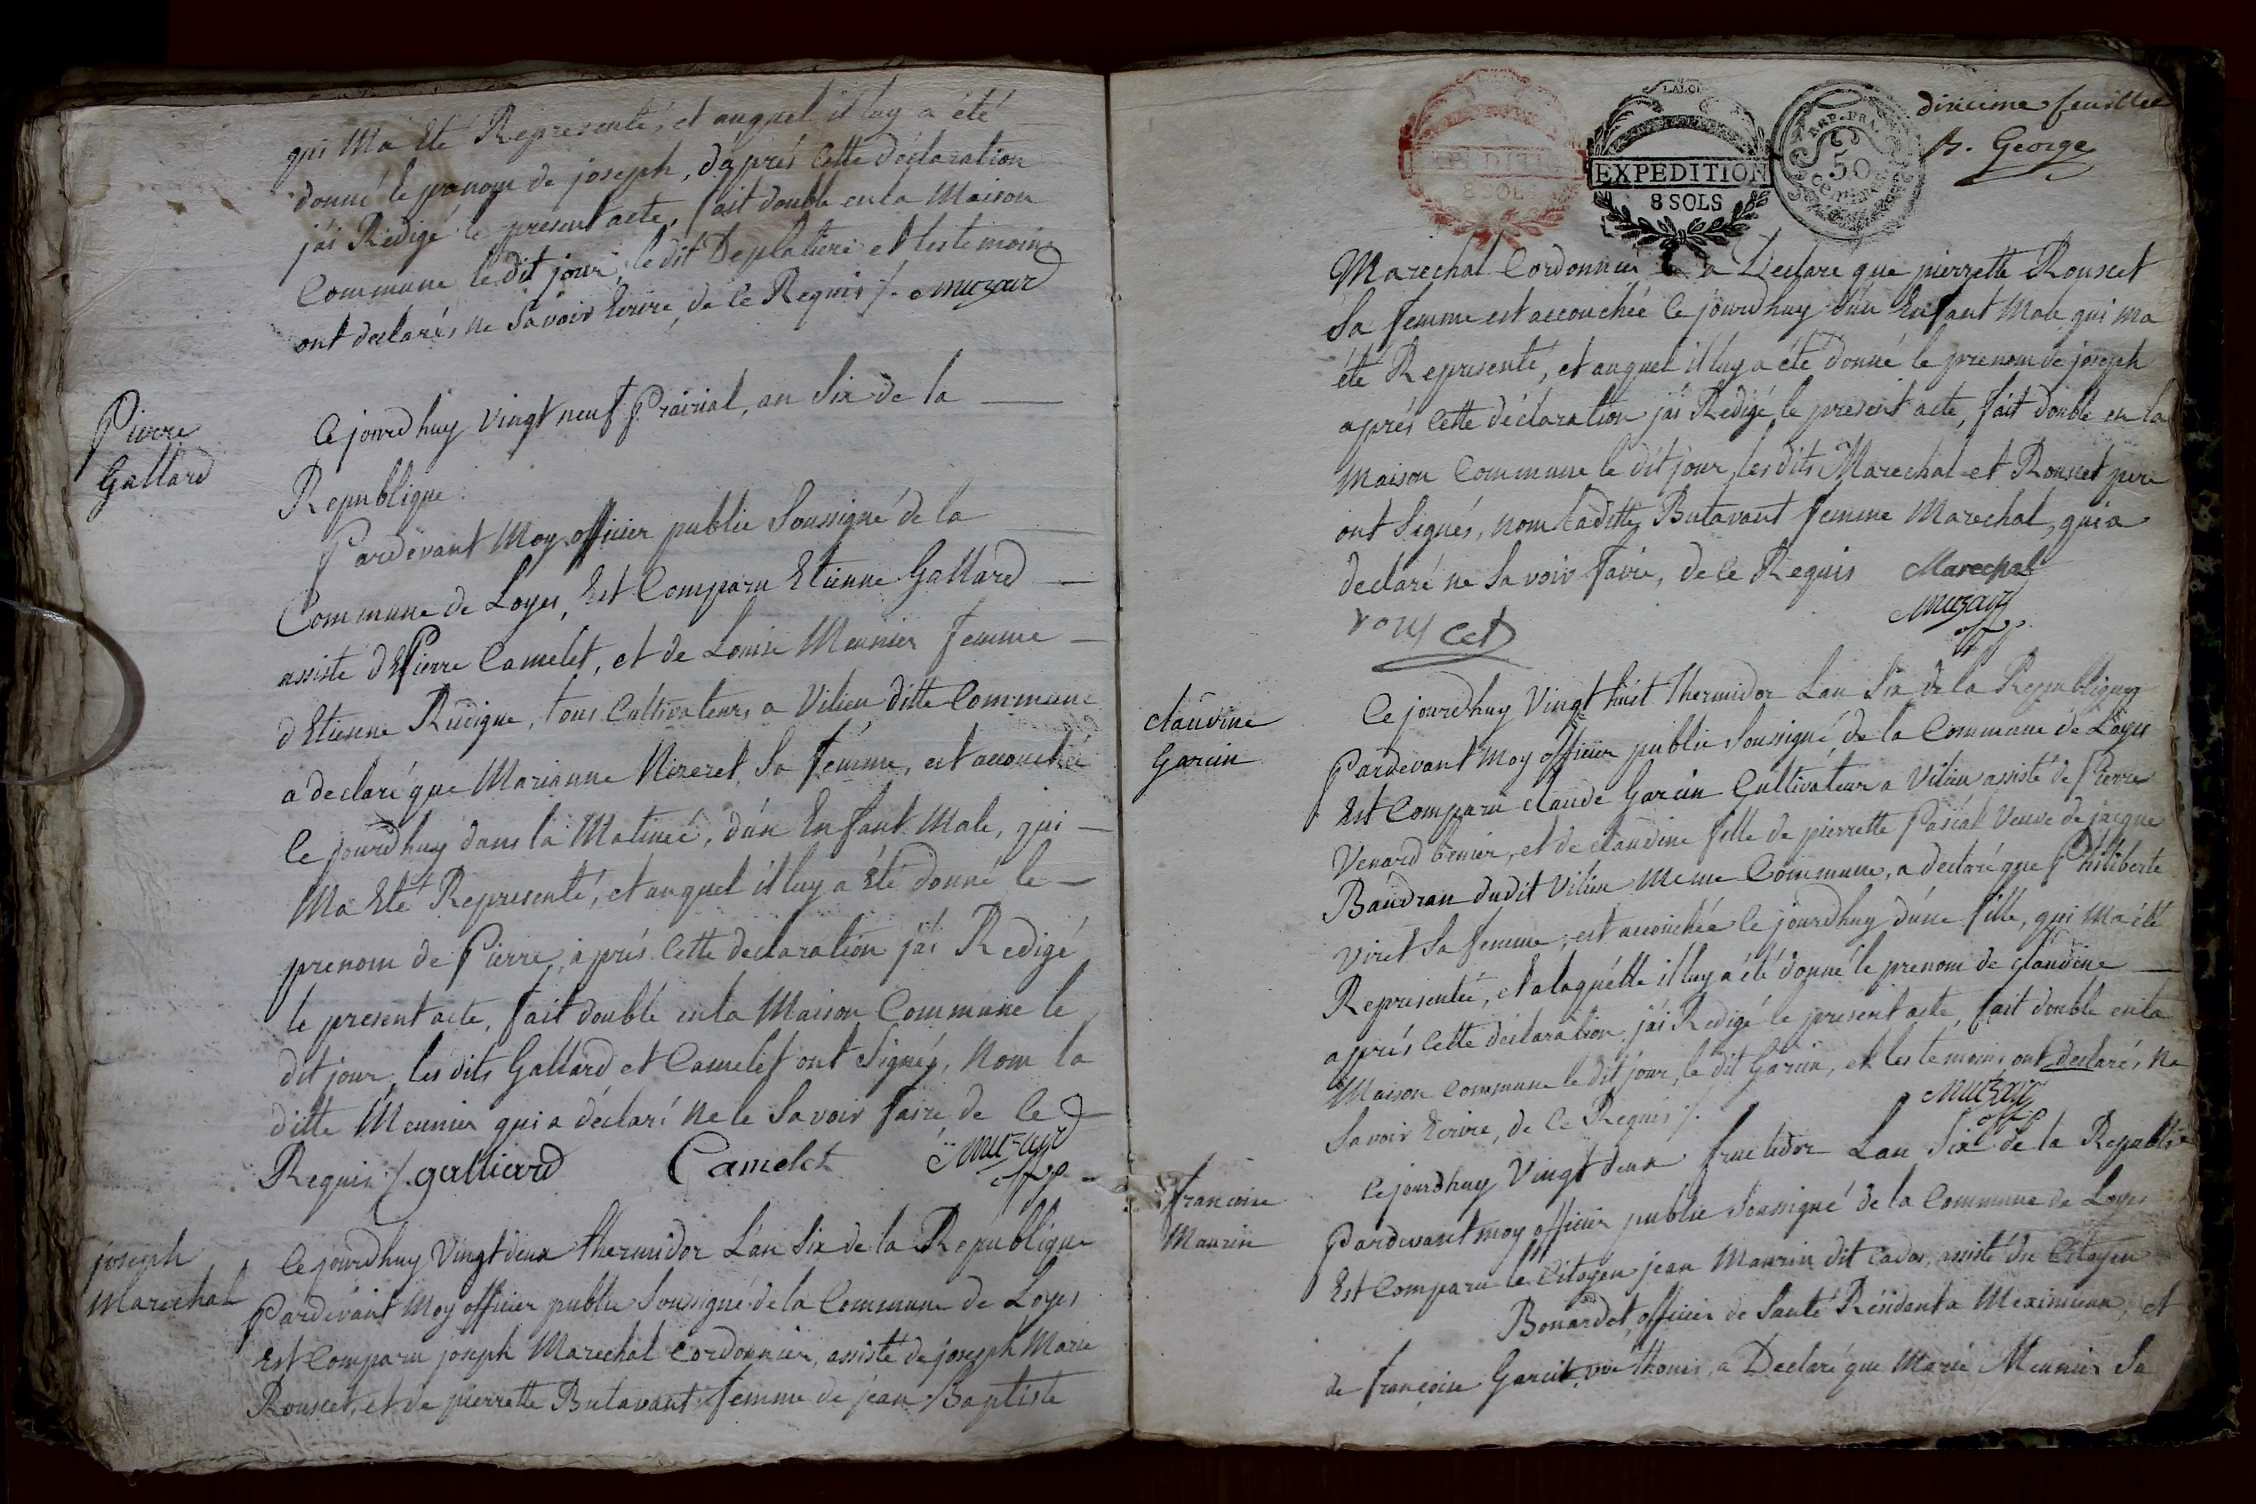 qui Ma Eté Representé, et auquel il luy a été
donné le prenom de joseph, dáprés Cette déclaration
j'ai Rédigé le present acte, fait double en la Maison
Commune le dit jour, le dit Deplatiere et les temoins
ont declarés ne Savoir Ecrire, de Ce Requis /. Muzard
Pierre
Gallard
Cejourd'huy vingt neuf Prairial, an Six de la
Republique.
Pardevant Moy officier public Soussigné de la
Commune de Loyes, Est Comparu Etienne Gallard
assisté d Pierre Camelet, et de Louise Meunier femme
d'Etienne Rudigue, tous Cultivateurs a Vilieu ditte Commune
a declaré que Marianne Nizeret Sa femme, est accouchée
Ce jourd'huy dans la Matineé, d'un Enfant Male, qui
Ma Eté Representé, et auquel il luy a Eté donné le
prenom de Pierre, aprés Cette declaration j'ai Redigé
le present acte, fait double en la Maison Commune le
dit jour, les dits Gallard et Camelet ont Signés, Nom la
ditte Meunier qui a déclaré Ne le Savoir faire de Ce
Requis /. galliard Camelet Muzard
off. p.
joseph
Marechal
Cejourd'huy Vingt deux thermidor L'an Six de la Republique
Pardevant Moy officier public Soussigné de la Commune de Loyes
Est Comparu joseph Marechal Cordonnier, assisté de joseph Marie
Rousset, et de pierrette Butavant femme de jean Baptiste
EXPEDITION
8 SOLS
LALOI
EXPEDITION
8 SOLS
REP. FRA.
50
Centimes
dixieme feuillet
B. George
Marechal Cordonnier a Declaré que pierrette Rousset
Sa femme est accouchée Ce jourd'huy d'un Enfant Male qui ma
été Representé, et auquel il luy a été donné le prenom de joseph
aprés Cette déclaration j'ai Redigé le present acte, fait double en la
Maison Commune le dit jour, les dits Marechal et Rousset pere
ont Signés, nom laditte Butavant femme Marechal, qui a
declaré ne Savoir faire, de Ce Requis Marechal
rousset Muzard
off. p.
claudine
Garcin
Ce jourd'huy Vingt huit thermidor Lan Six de la Republique
Pardevant Moy officier public Soussigné de la Commune de Loyes
Est Comparu claude Garcin Cultivateur a Vilieu assisté de Pierre
Venard fermier, et de claudine fille de pierrette Pascal Veuve de jacque
Baudran dudit Vilieu Meme Commune, a declaré que Philiberte
Viret Sa femme, est accouchée Ce jourd'huy d'une fille, qui Ma été
Representée, et a laquelle il luy a été donné le prenom de claudine
aprés Cette déclaration, j'ai Redigé le present acte, fait double en la
Maison Commune le dit jour, le dit Garcin, et les temoins ont declarés, Ne
Savoir Ecrire, de Ce Requis /. Muzard
off. p.
francoise
Maurin
Cejourd'huy Vingt deux fructidor Lan Six de la Republi
Pardevant moy officier public Soussigné de la Commune de Loyes
Est Comparu le Citoyen jean Maurin dit Cador, assisté du Citoyen
Bonardet, officier de Santé Résidant a Meximieux, et
de françoise Garcit, a Declaré que Marie Meunier Sa